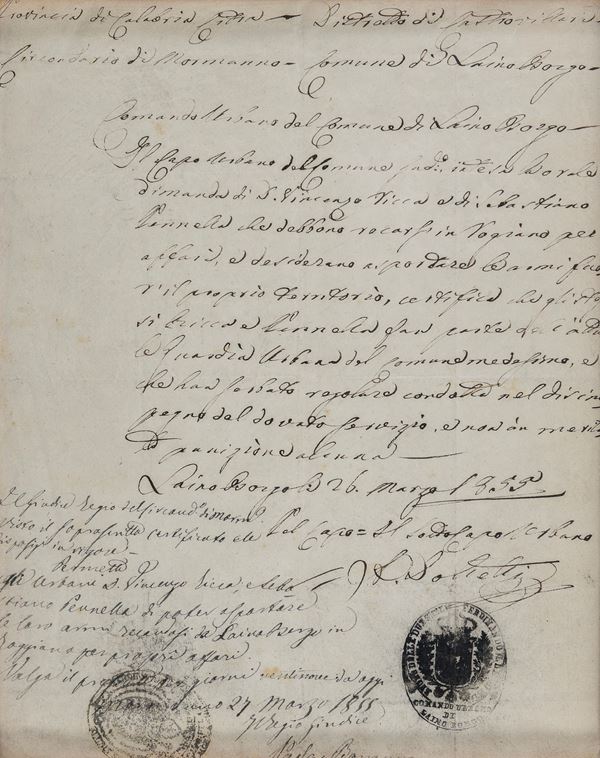 Provincia di Calabria Citra — Distretto di Castrovillari —
Circondario di Mormanno — Comune di Laino Borgo —
Comando Urbano del Comune di Laino Borgo —
Il Capo Urbano del Comune sud.º in esa Borale
dimanda di D. Vincenzo Ricca e di Sebastiano
Pennella che debbono recarsi in Rogiano per
affari, e desiderano asportare le armi fuo
r'il proprio territorio, certifica che gli stes
si Ricca e Pennella fan parte
le Guardia Urbana del Comune medesimo, e
che han serbato regolare condotta nel disim
pegno del dovuto servizio, e non àn merita
to punizione alcuna —
Laino Borgo li 26. Marzo 1855
Pel Capo = Il Sotto Capo Urbano
Il Giudice Regio del Circond.º di Morm.º
Visto il soprascritto certificato e le
disposiz. in vigore —
Permette
agli Urbani D. Vincenzo Ricca, e Seba
stiano Pennella di poter asportare
le loro armi recandosi da Laino Borgo in
Roggiano per propri affari.
Valga il presente per giorni ventinove da oggi.
Mormanno 27 Marzo 1855
Il Regio Giudice
FERDINANDO II
COMANDO URBANO
DI
LAINO BORGO